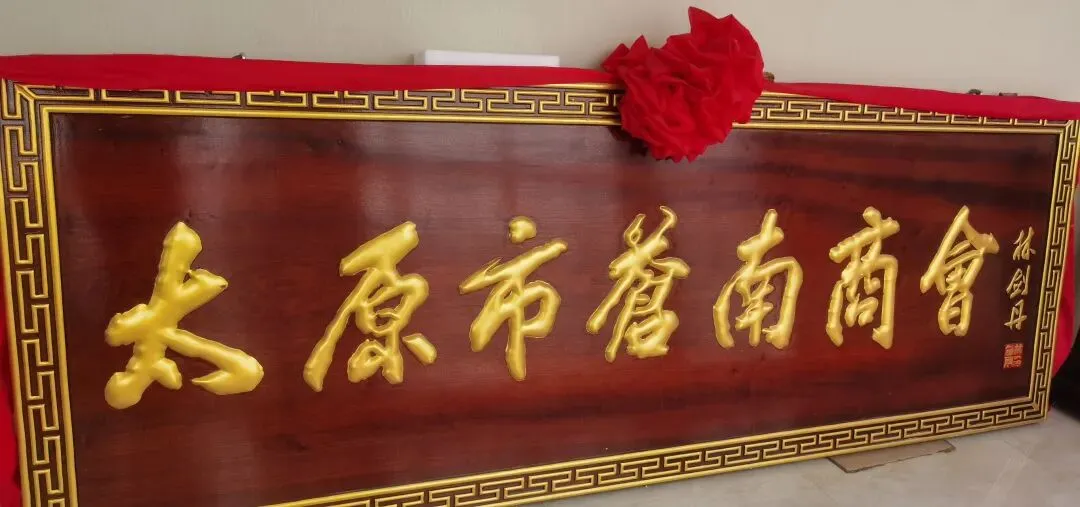 太原市蒼南商會
林剑丹